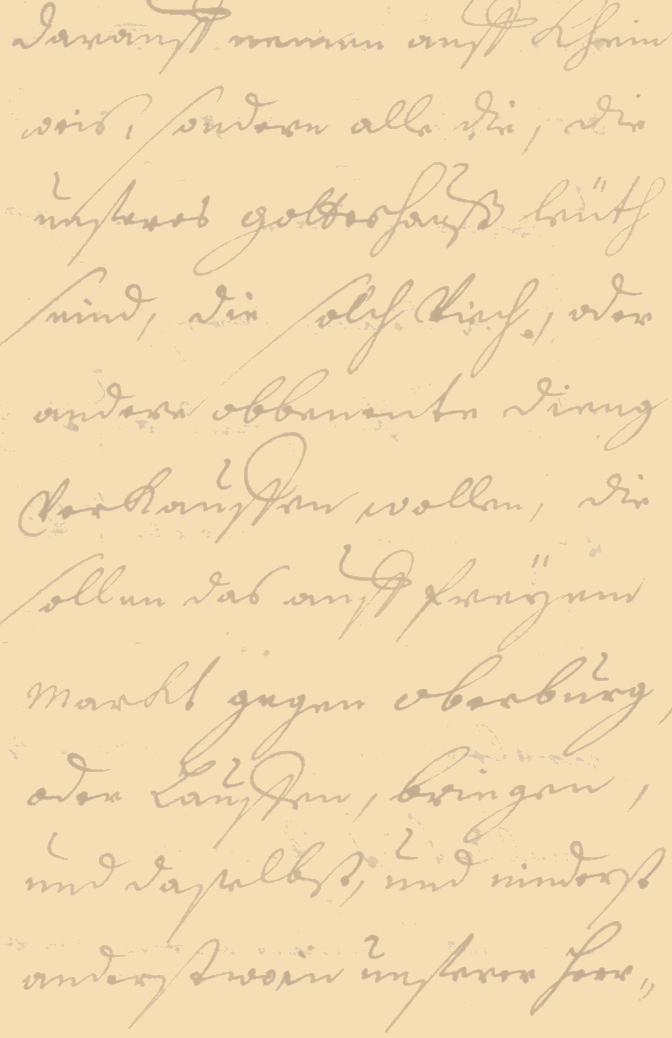 darauff nemmen auff Khein
weis, sondern alle die, die
unseres gotteshauß leüth
seind, die solch Viech, oder
andere obbenente dieng
Verkauffen wollen, die
sollen das auff freÿem
Markt gegen oberburg,
oder Lauffen, bringen,
und daselbst, und ninderst
anderstwo in unserer herr„